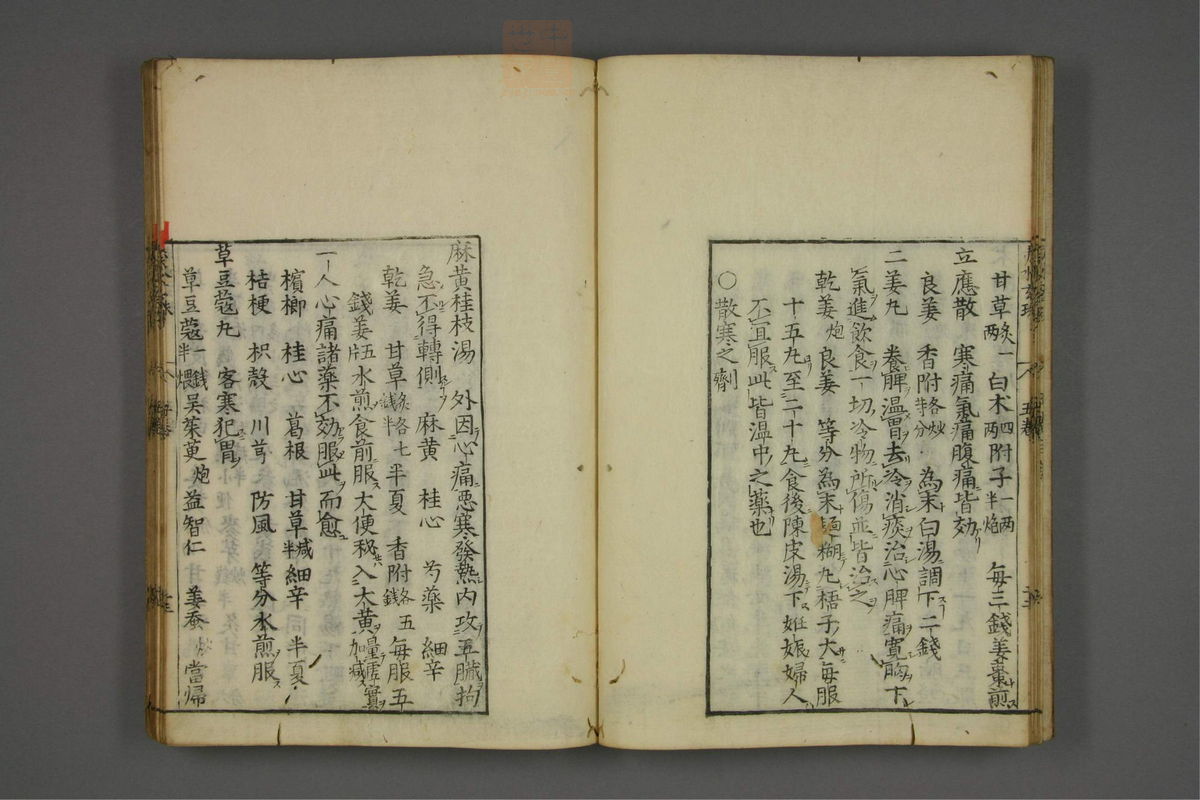 甘草炙一两白朮四两附子一两半炮 每三錢姜棗煎
立應散 寒痛氣痛腹痛皆効
良姜 香附各炒等分 為末白湯調下二錢
二姜丸 養脾温胃去冷消痰治心脾痛寛胸下
氣進飲食一切冷物所傷並皆治之
乾姜炮 良姜 等分為末麺糊丸梧子大毎服
十五丸至二十丸食後陳皮湯下妊娠婦人
不宜服此皆温中之藥也
○散寒之劑
麻黄桂枝湯 外因心痛悪寒發熱内攻五臓拘
急不得轉側 麻黄 桂心 芍藥 細辛
乾姜 甘草炙各七錢半 半夏 香附各五錢 毎服五
錢姜五片水煎食前服大便秘入大黄量虚實加减
一人心痛諸藥不効服此而愈
檳榔 桂心 葛根 甘草减半 細辛 半夏
桔梗 枳殻 川芎 防風 等分水煎服
草豆蔻丸 客寒犯胃
草豆蔻一錢半煨 吴茱萸炮 益智仁 姜蚕炒 當帰